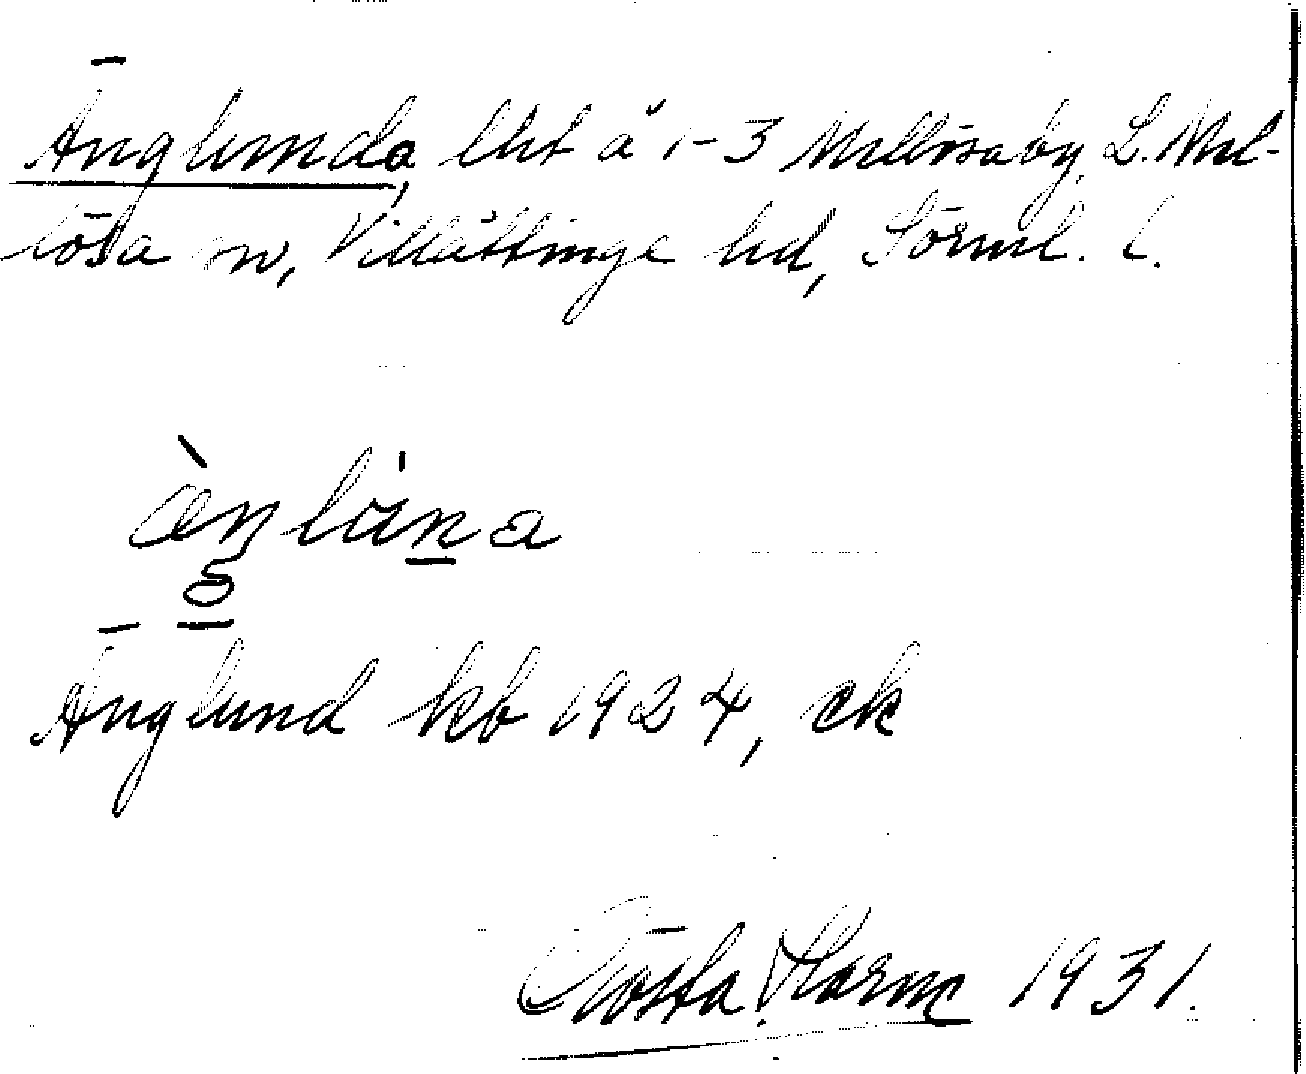 Änglunda, lht å 1-3 Mellösa by, L. Mel-
lösa sn, Villåttinge hd, Sörml. l.
Änglund kb 1924, ek
Gösta Storm 1931.